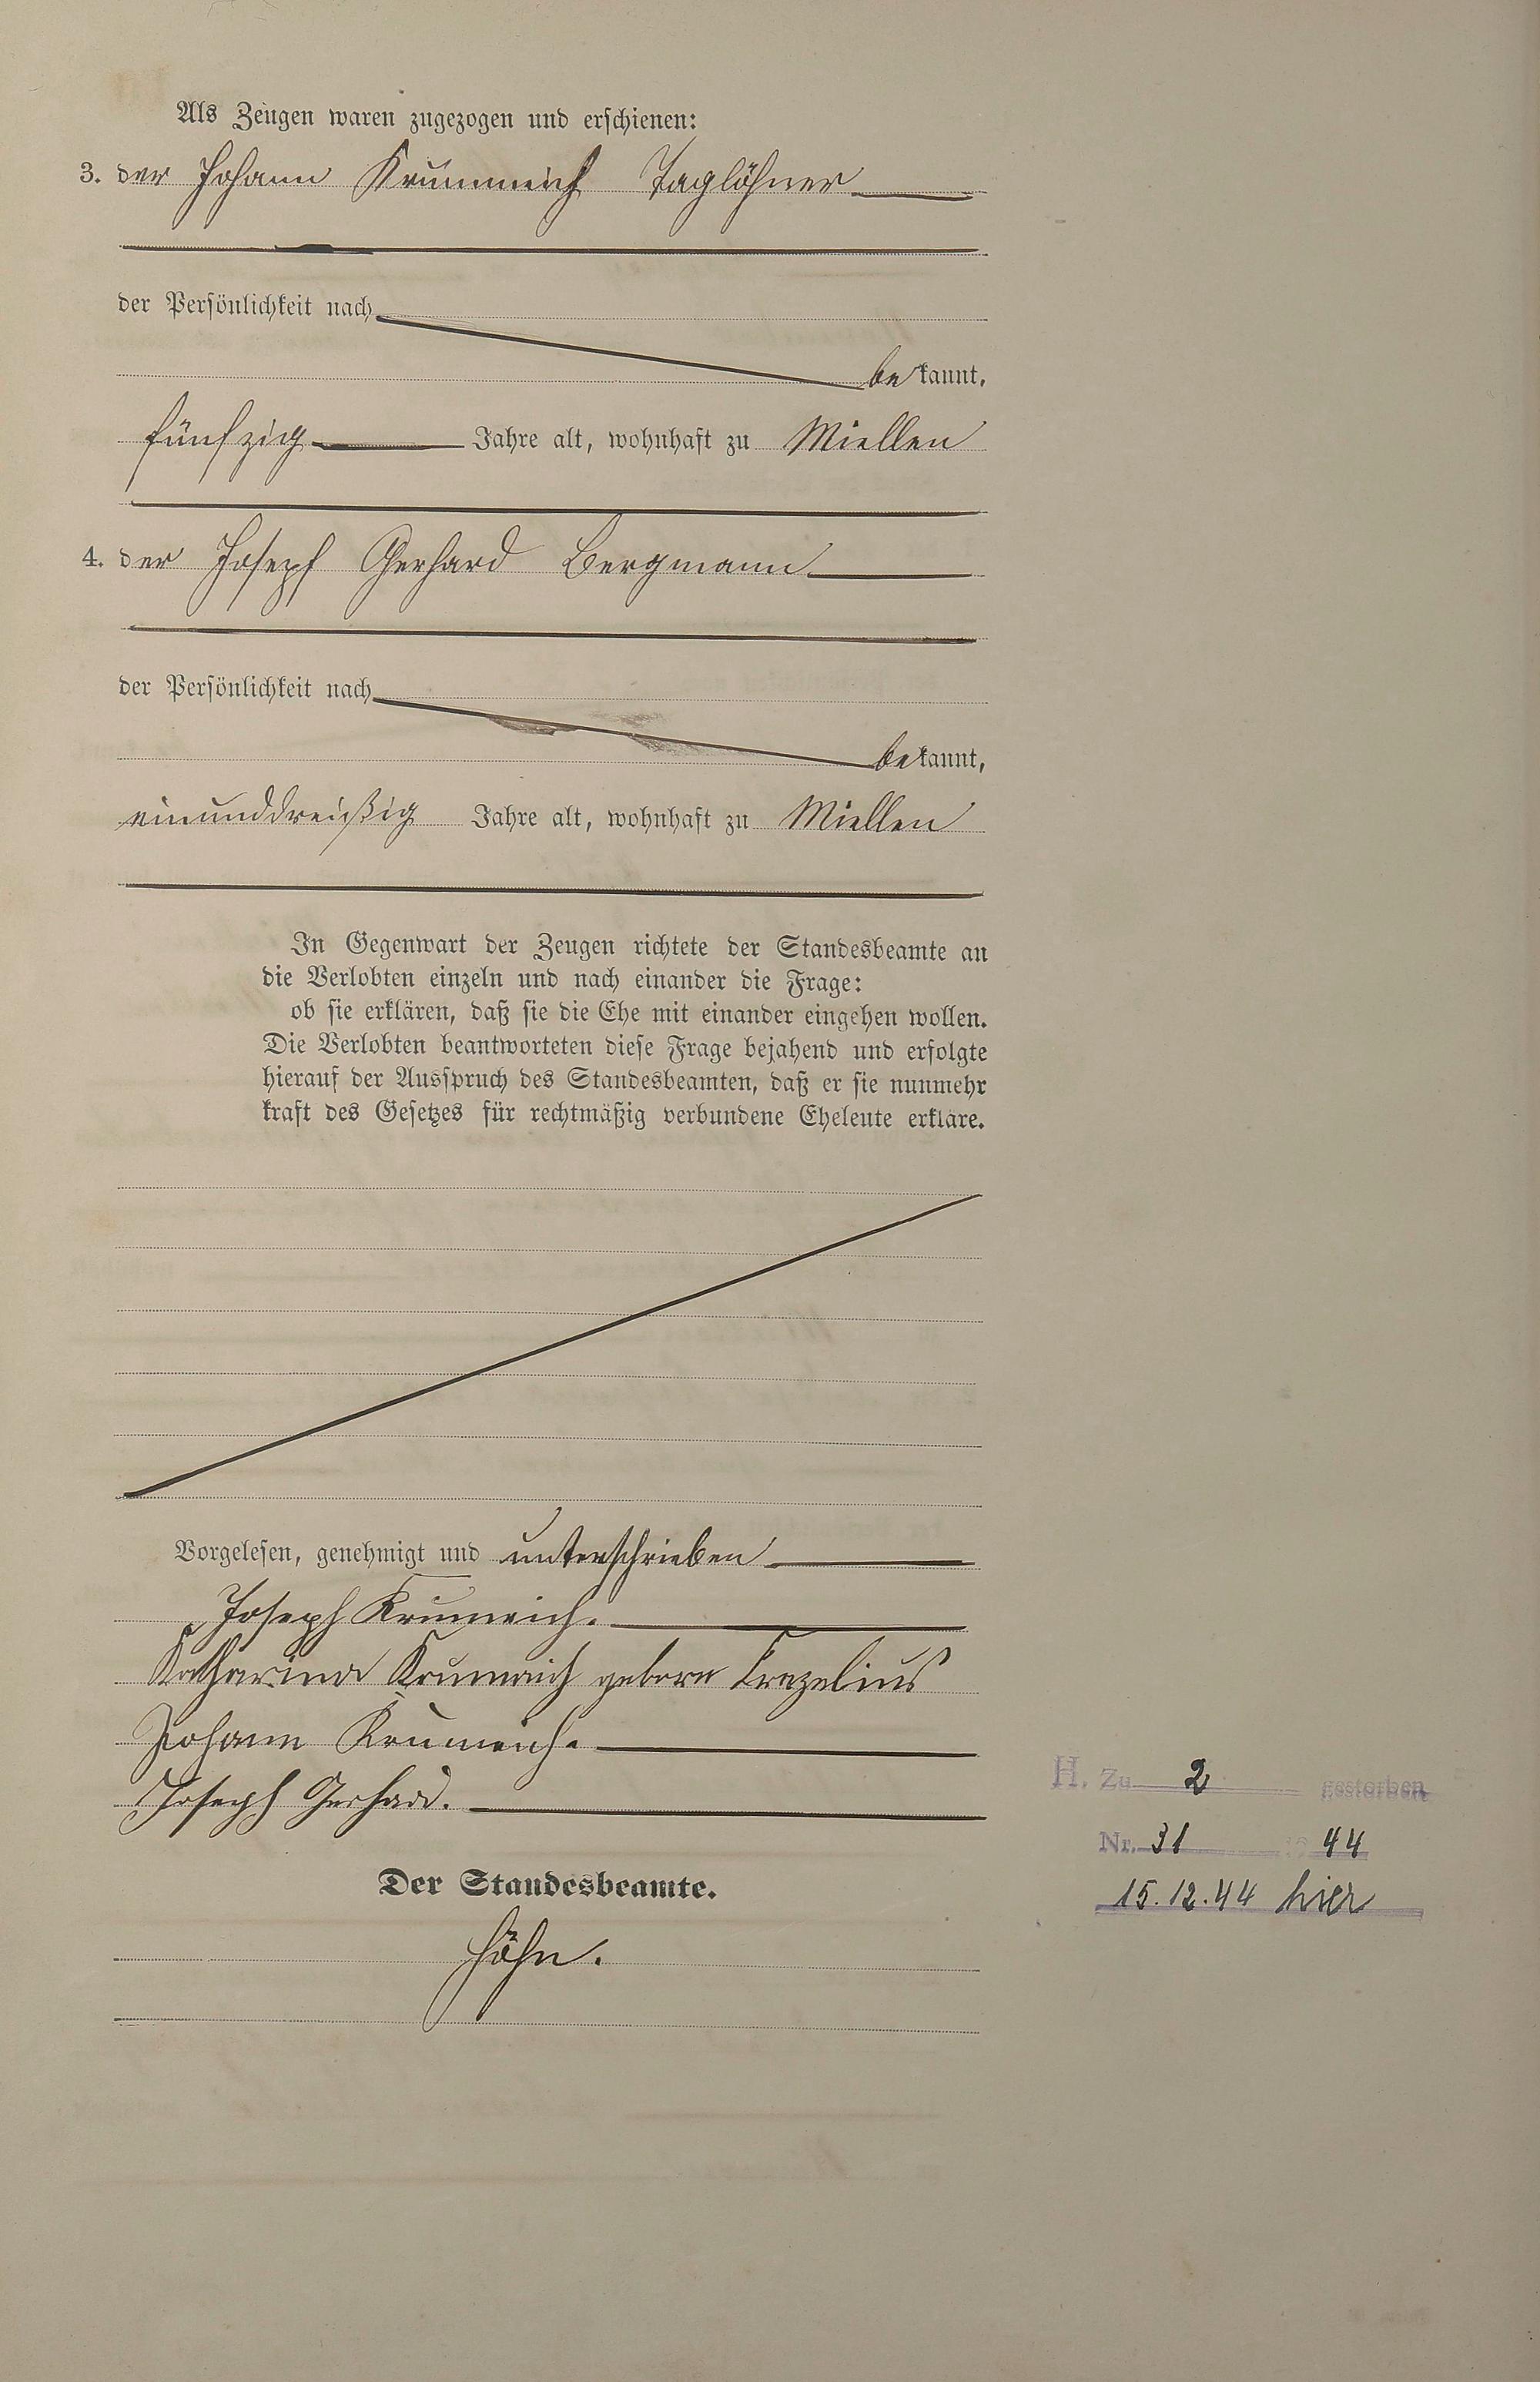 Als Zeugen waren zugezogen und erschienen:
3. der Johann Krummeich Taglöhner
der Persönlichkeit nach
be kannt,
fünfzig Jahre alt, wohnhaft zu Miellen
4. der Joseph Gerhard Bergmann
der Persönlichkeit nach
be kannt,
einunddreißig Jahre alt, wohnhaft zu Miellen
In Gegenwart der Zeugen richtete der Standesbeamte an
die Verlobten einzeln und nach einander die Frage:
ob sie erklären, daß sie die Ehe mit einander eingehen wollen.
Die Verlobten beantworteten diese Frage bejahend und erfolgte
hierauf der Ausspruch des Standesbeamten, daß er sie nunmehr
kraft des Gesetzes für rechtmäßig verbundene Eheleute erkläre.
Vorgelesen, genehmigt und unterschrieben
Joseph Krumeich.
Katharina Krumeich geborn Trezelius
Johann Krumeich.
Joseph Gerhard.
H. Zu 2 gestorben
Nr. 31 19 44
15.12.44 hier
Der Standesbeamte.
Höhn.